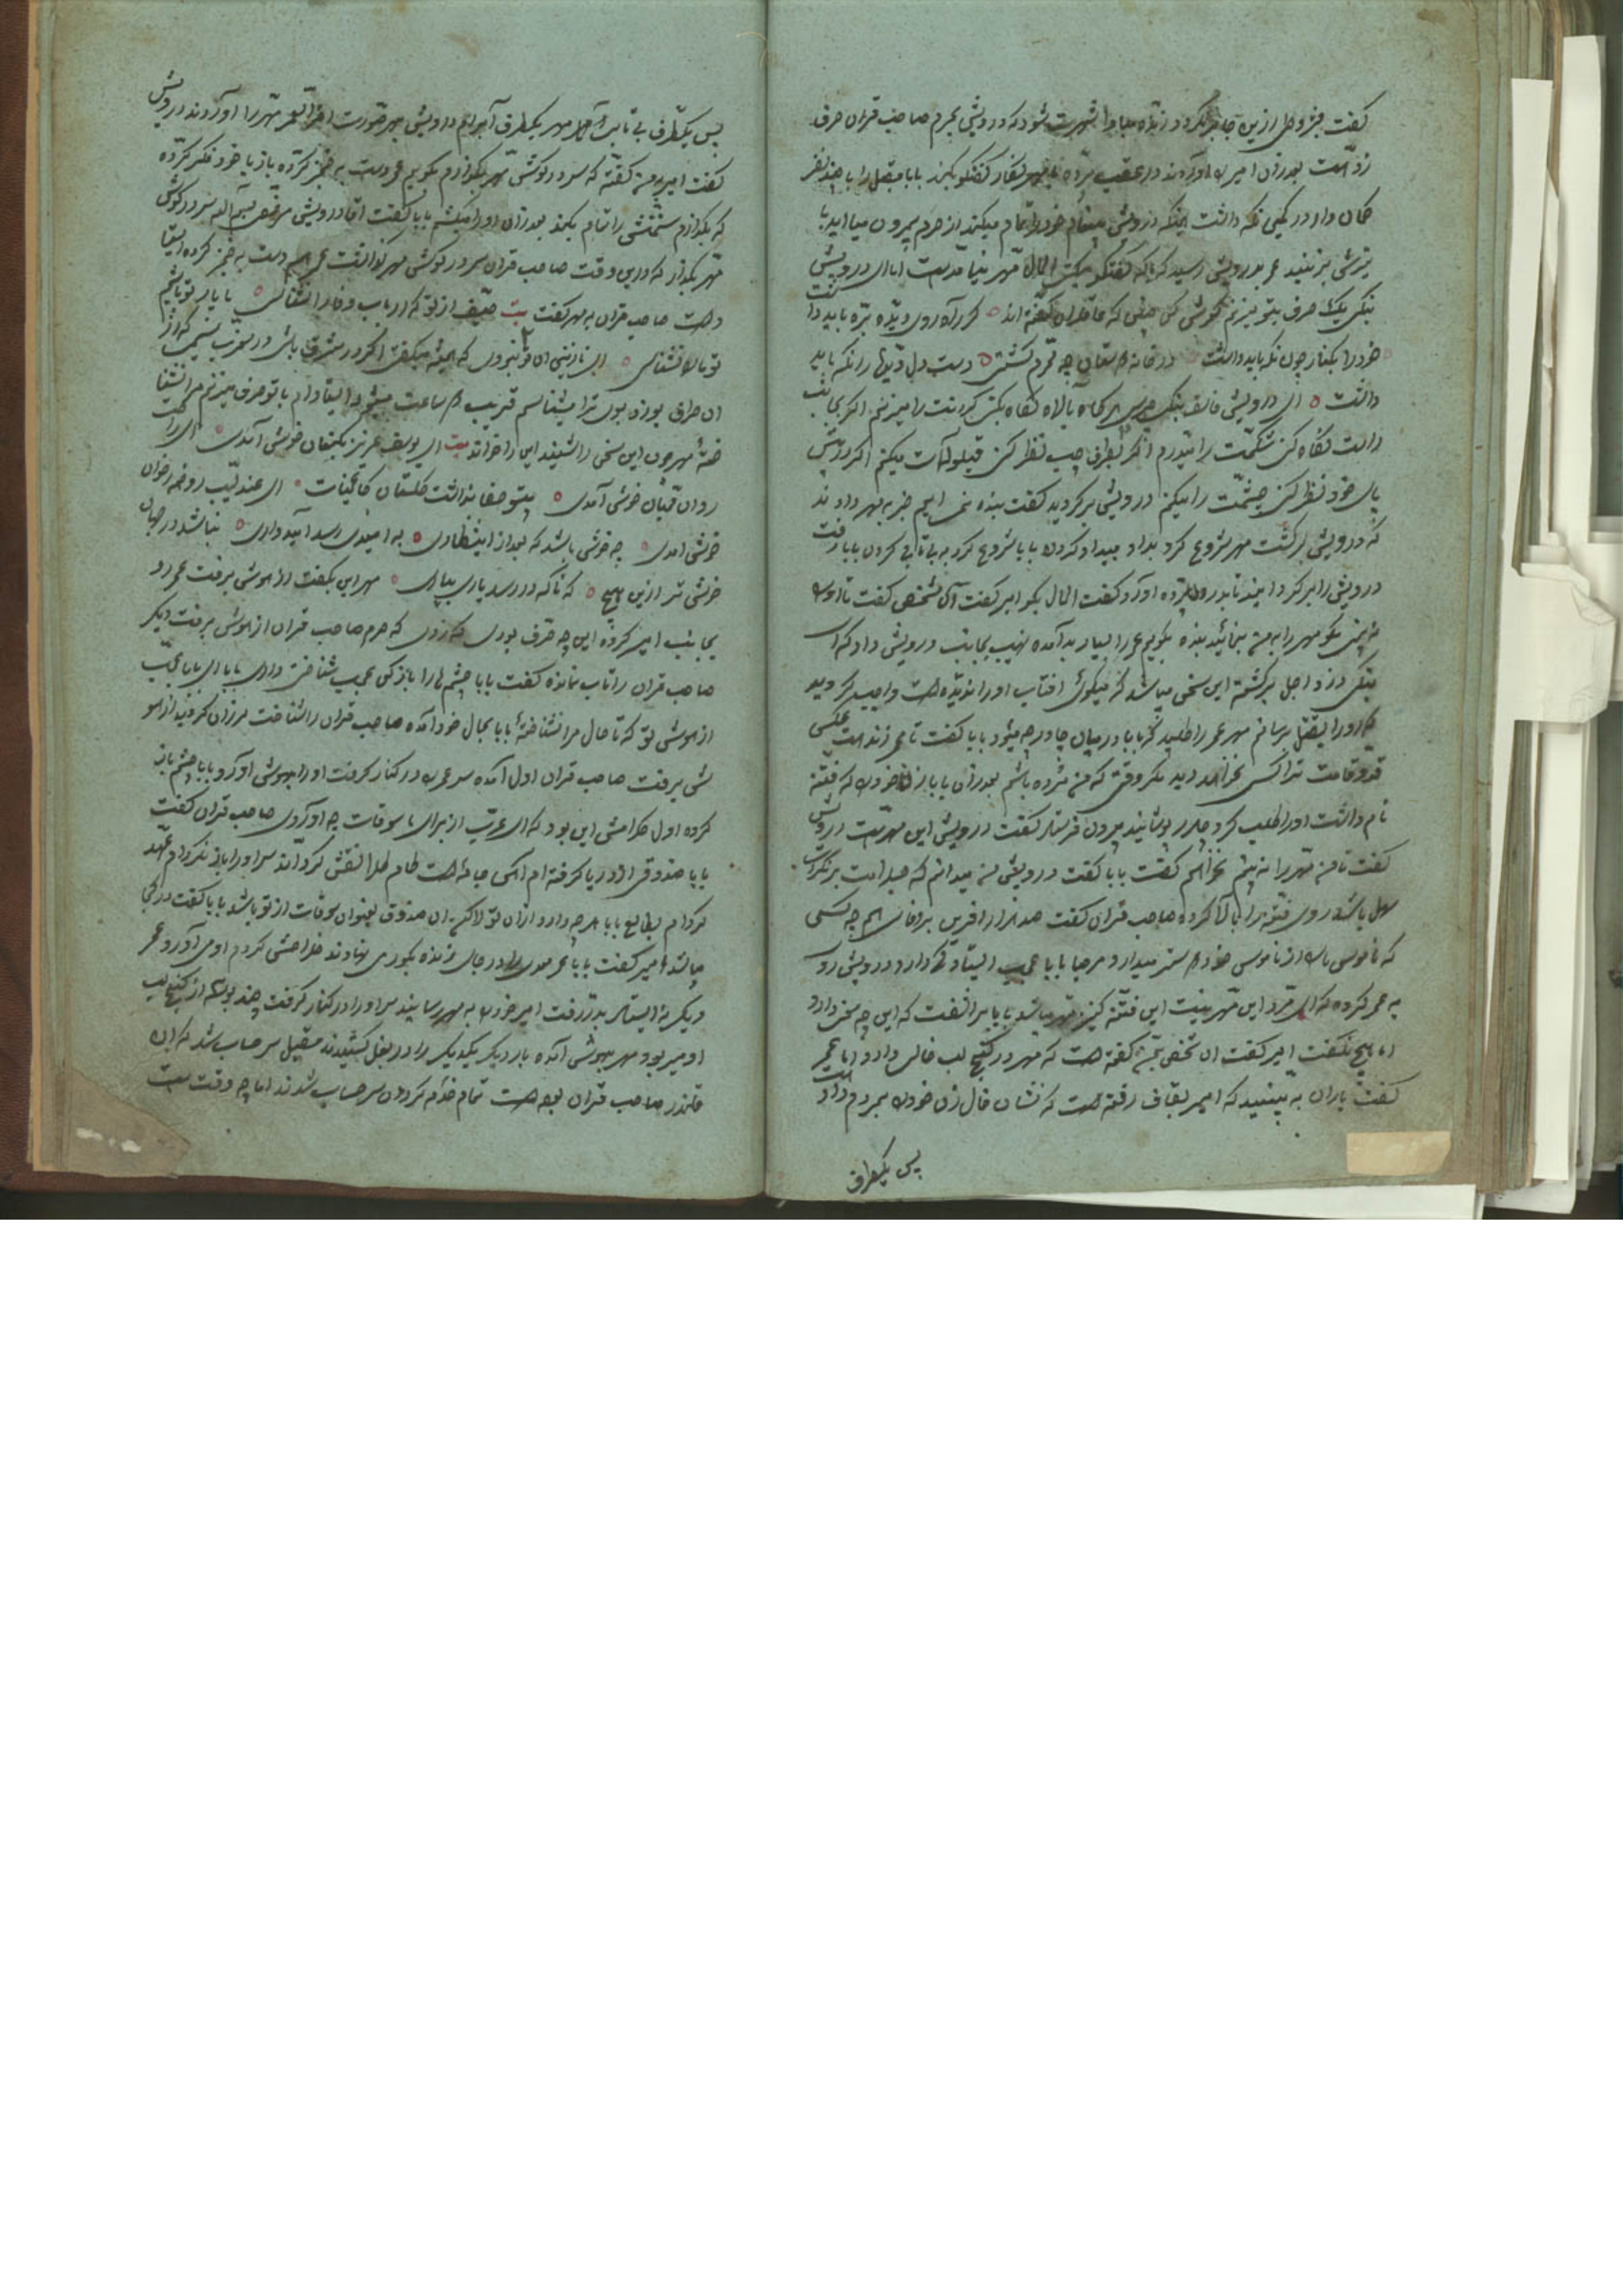 گفت بشرطی ازین جا بر نگردد زیاده مبادا شهرت شود که درویش بحرم صاحب قران حرف
زده است بعد ازان امیر را آوردند در عقب پرده با مهرنگار گفتگو بکند بابا مقبل را با چند نفر
کمان دار در کمین نگه داشت همینکه درویش مقام خود را تمام میکند از حرم بیرون میآید با
تیرش بزنید عمر بدرویش رسید که گفتگو بکن الحال مهر بنیاد است اما ای درویش
بنگی یک حرف بتو میزنم گوش کن که عاقلان گفته اند کز راه روی و پرده بره باید داشت
خود را بکنار چون نگه باید داشت در خانه دوستان چو محرم گشتی دست و دل و دیده را نگه باید
داشت ای درویش خالف بنگی چرس اگر نگاه بالا نگاه بکنی گردنت را میزنم اگر بجانب
راست نگاه کنی شکمت را میدرم اگر بطرف چپ نظر کنی قیلوله‌ات میکنم اگر در پیش
پای خود نظر کنی چشمت را میکنم درویش برگردید گفت بنده نمی‌آیم خبر به مهر دادند
که درویش برگشت مهر شروع کرد بداد بیداد کردن بابا شروع کرد به بی‌تابی کردن بابا رفت
درویش را برگردانید تا بدر پرده آورد گفت الحال بگو امیر گفت آن شخص گفت تا تو
مهر را به من ننمائید بنده نگویم عمر را بسیار بد آمده نهیب بجانب درویش داد که ای
بنگی دزد اجل برگشته این سخن میباشد که میگوئی آفتاب او را ندیده است واجب گردید
که او را بقتل برسانم مهر عمر را طلبید که بابا در میان چادر چه میشود بابا گفت تا عمر زنده است عکس
قد و قامت ترا کسی نخواهد دید مگر وقتی که من مرده باشم بعد ازان بابا زن خود را که فتنه
نام داشت او را طلب کرد چادر پوشانید بیرون فرستاد گفت درویش این مهر است درویش
گفت تا من مهر را نه بینم نخواهم گفت بابا گفت درویش من میدانم که
سهل باشد روی فتنه را بالا کرده صاحب قران گفت صد هزار آفرین برادر چه کسی
که ناموس ما را از ناموس خود بهتر میدارد مرحبا بابا عجب استاد درویش رو
به عمر کرده که ای مرد این مهر نیست این فتنه کنیز مهر میباشد بابا بر آشفت که این چه سخن دارد
اما هیچ نگفت امیر گفت آن شخص بمن گفته است که مهر در کنج لب خالی دارد اما عمر
گفت یاران به بینید که امیر بقاف رفته است که نشان خال زن خود را بمردم داده است
پس یکطرف
پس یکطرف بی تابی مهر یکطرف آبرام درویش بهر صورت آخر الامر مهر را آوردند درویش
گفت امیر به من گفته که سر در گوش مهر بگذارم بگویم عمر دست به خنجر کرده باز با خود فکر کرده
که بگذارم سخنش را تمام بکند بعد ازان او را میکشم بابا گفت اما درویش مرخص بسم الله سر در گوش
مهر بگذار که درین وقت صاحب قران سر در گوش مهر گذاشت عمر هم دست به خنجر کرده ایستاده
است صاحب قران به مهر گفت بیت حیف از تو که ارباب وفا را نشناسی ما یار تو باشیم
تو ما را نشناسی ای نازنین آن تو نبودی که همیشه میگفتی اگر در مشرق باشی و در مغرب نسیمی که از
آن طرف بوزد بوی ترا میشناسم قریب دو ساعت میشود ایستاده‌ام با تو حرف میزنم مرا نشناخته
مهر چون این سخن را شنید این را خواند بیت ای یوسف عزیز بکنعان خوش آمدی ای راحت
روان تن و جان خوش آمدی بیتو صفا نداشت گلستان کائنات ای عندلیب روضه رضوان
خوش آمدی چه خوش باشد که بعد از انتظاری به امیدی رسد امیدواری نباشد در جهان
خوش تر ازین هیچ که ناگه در رسد یاری بیاری مهر این بگفت و از هوش برفت عمر رو
بجانب امیر کرده این چه حرف بودی که زدی که حرم صاحب قران از هوش برفت دیگر
صاحب قران را تاب نمانده گفت بابا چشم ها را باز کن عجب شناختن داری بابا ای بابا عجب
از هوش تو که تا حال مرا نشناخته بابا بحال خود آمده صاحب قران را شناخت لرزان گردید از هو
ش برفت صاحب قران اول آمده سر عمر را در کنار گرفت او را بهوش آورد بابا چشم باز
کرده اول کلامش این بود که ای عرب از برای ما سوقات چه آوردی صاحب قران گفت
بابا صندوقی از دریا گرفته ام طلا نقش کرده‌اند سر او را باز نکرده‌ام عهد
کرده‌ام بطالع بابا هر چه دارد ازان تو لاکن آن صندوق بعنوان سوقات از تو باشد بابا گفت در کجا
میباشد امیر گفت بابا عمر معدی را در جای زنده بگوری نهادند خلاصش کردم او می‌آورد عمر
دیگر نه ایستاد بدر رفت امیر خود را به مهر رسانید سر او را در کنار گرفت چند بوسه از کنج لب
او میربود مهر بهوش آمده بار دیگر یکدیگر را در بغل کشیدند مقبل سر حساب شد که این
قلندر صاحب قران بوده است تمام خدم کردون سر حساب شدند اما چه وقت است